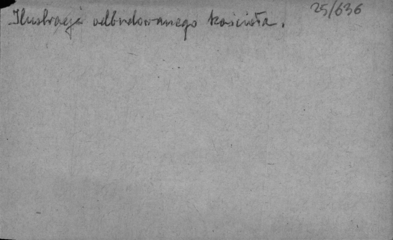 25/636
Ilustracje odbudowanego kościoła.